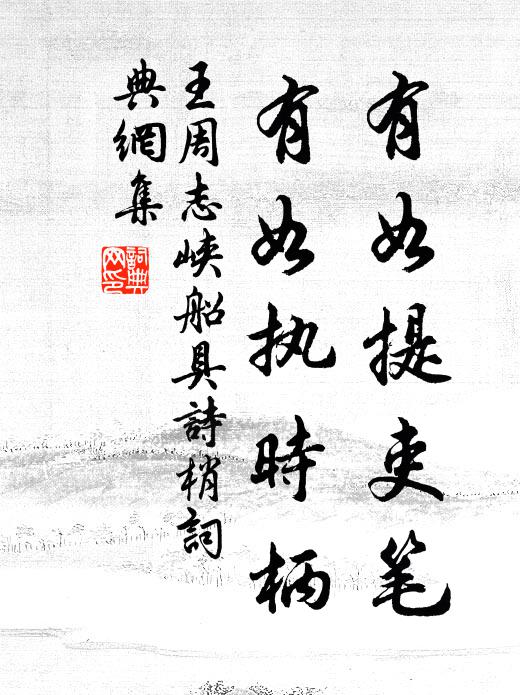 有如提吏笔
有如执時柄
王周志峡船具詩梢詞
典網集
詞典
网印